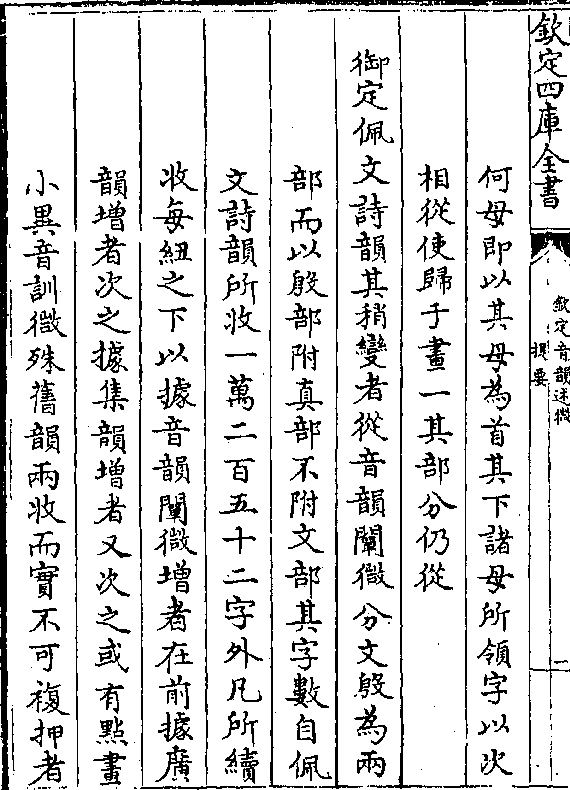 欽定四庫全書
欽定音韻述微
提要
一
何母即以其母為首其下諸母所領字以次
相從使歸于畫一其部分仍從
御定佩文詩韻其稍變者從音韻闡微分文殷為兩
部而以殷部附真部不附文部其字數自佩
文詩韻所收一萬二百五十二字外凡所續
收每紐之下以據音韻闡微增者在前據廣
韻增者次之據集韻增者又次之或有點畫
小異音訓微殊舊韻兩收而實不可複押者